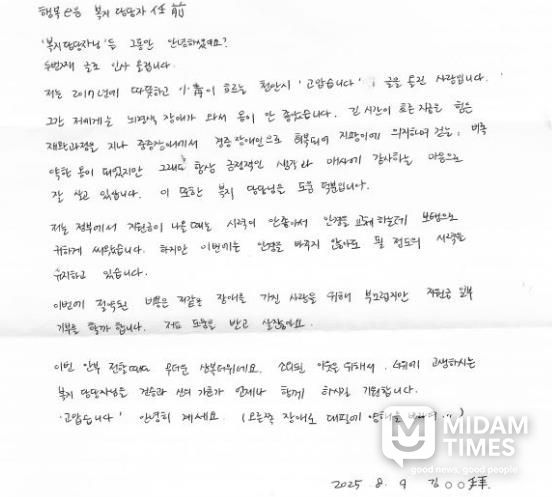 행복e음 복지 담당자 任前
'복지담당자님'들 그동안 안녕하셨어요?
두번째 글로 인사 올립니다.
저는 2017년에 따뜻하고 흐르는 천안시 '고맙습니다', 글을 올린 사람입니다.
그간 저에게는 뇌병변 장애가 와서 몸이 안 좋았습니다. 긴 시간이 흐른 지금은 힘든
재활과정을 지나 중증장애에서 경증장애인으로 회복되어 지팡이에 의지하여 걷는, 비록
약한 몸이 되었지만 그래도 항상 긍정적인 생각과 매사에 감사하는 마음으로
잘 살고 있습니다. 이 또한 복지 담당님들 도움 덕분입니다.
저는 정부에서 지원금이 나올때는 시력이 안좋아서 안경을 교체하는데 보탬으로
귀하게 써왔습니다. 하지만 이번에는 안경을 바꾸지 않아도 될 정도의 시력을
유지하고 있습니다.
이번에 절약된 비용은 저같은 장애를 가진 사람을 위해 부끄럽지만 지원금 일부
기부를 할까 합니다. 저도 도움을 받고 살잖아요.
이번 안부 전할때는 무더운 삼복더위네요. 소외된 이웃을 위해서, 더위에 고생하시는
복지 담당자님들 건승과 신의 가호가 언제나 함께 하시길 기원합니다.
'고맙습니다' 안녕히 계세요. (오른쪽 장애로 대필에 양해를
2025 8. 9 김○○拜.
MIDAM
TIMES
good news, good people